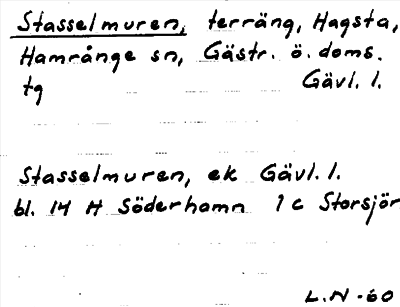 Stasselmuren, terräng, Hagsta,
Hamrånge sn, Gästr. ö. doms.
tg Gävl. l.
Stasselmuren, ek Gävl. l.
bl. 14 H Söderhamn 1 c Storsjön
L.N -60